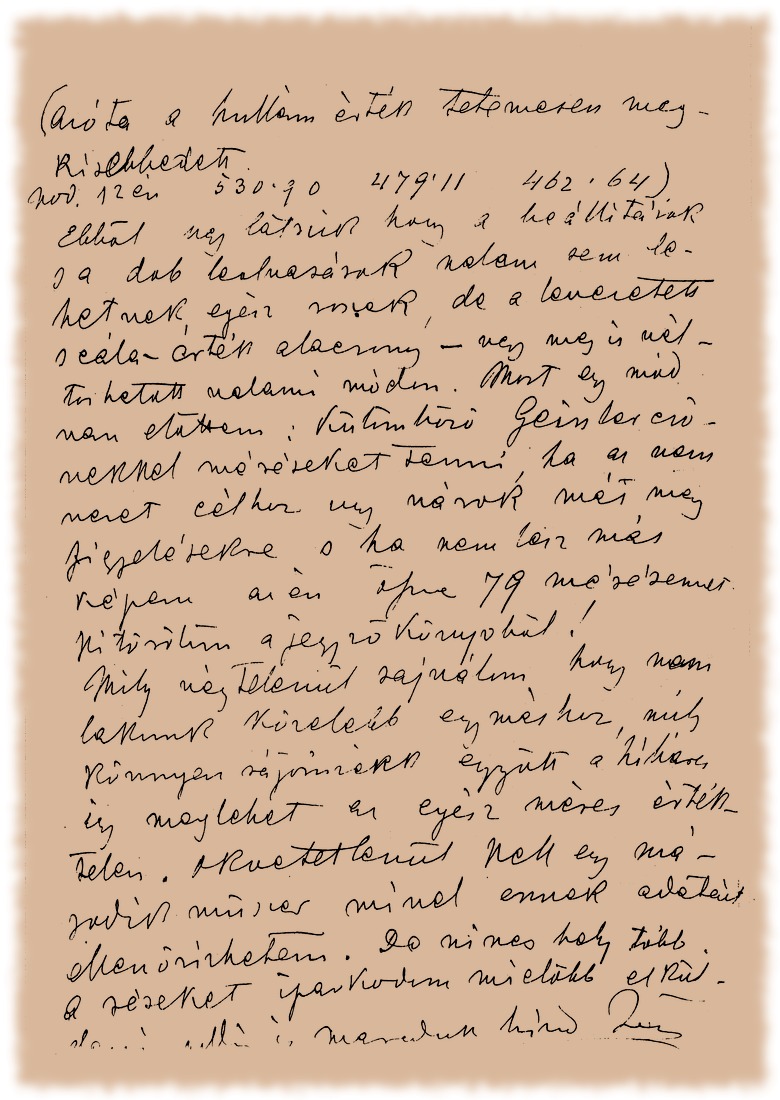 (azóta a hullám érték tetemesen meg-
kisebbedett.
nov. 12 én 530·90 479·11 462·64)
Ebből úgy látszik hogy a beállítások
s a dob leolvasások nálam sem le-
hetnek egész roszak, de a levezetett
scála-érték alacsony – vagy meg is vál-
tozhatott valami módon. Most egy mód
van előttem: különböző Geissler cső-
vekkel méréseket tenni, ha az nem
vezet célhoz úgy várok más meg
figyelésekre s ha nem lesz más
képem azén össze 79 mérésemet
kitörölöm a jegyzőkönyvből!
Mily végtelenül sajnálom hogy nem
lakunk közelebb egymáshoz, mily
könnyen rájönnénk együtt a hibára,
így meglehet az egész mérés érték-
telen. Okvetetlenül kell egy má-
sodik műszer mivel ennek adatait
ellenőrizhetem. De nincs hely több.
a réseket iparkodom mielőbb elkül-
maradunk hived